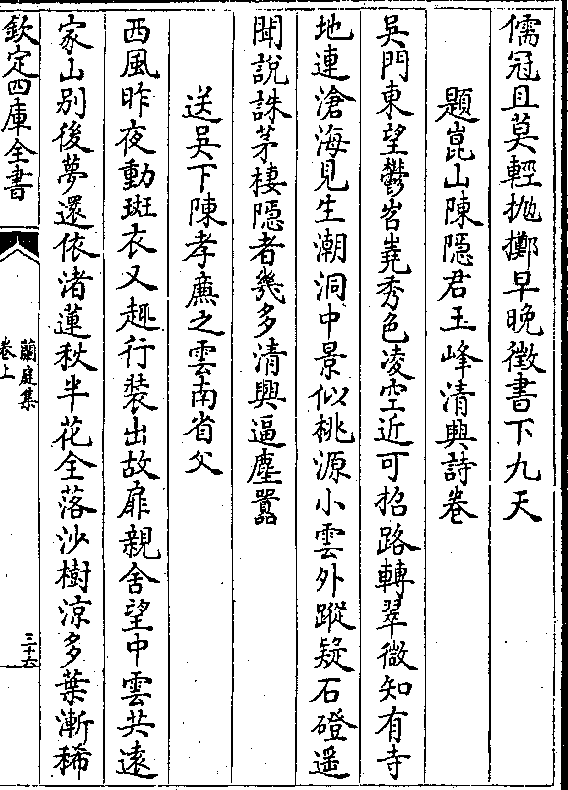 儒冠且莫輕抛擲早晚徵書下九天
題崑山陳隱君玉峰清興詩卷
吳門東望鬱岧嶤秀色凌空近可招路轉翠微知有寺
地連滄海見生潮洞中景似桃源小雲外蹤疑石磴遥
聞說誅茅棲隱者幾多清興逼塵囂
送吳下陳孝亷之雲南省父
西風昨夜動斑衣又趣行裝出故扉親舍望中雲共遠
家山別後夢還依渚蓮秋半花全落沙樹涼多葉漸稀
欽定四庫全書
蘭庭集
卷上
三十六